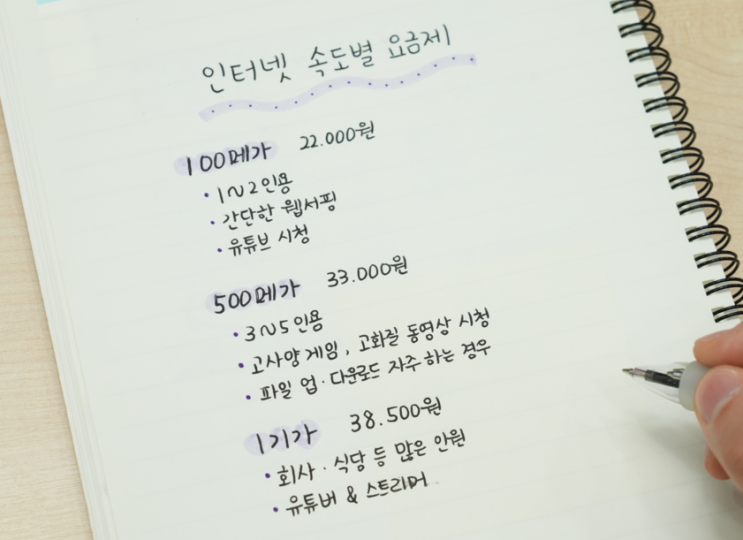 인터넷 속도별 요금제
100메가 22.000원
• 1~2인용
• 간단한 웹서핑
• 유튜브 시청
500메가 33.000원
• 3~5인용
• 고사양 게임, 고화질 동영상 시청
• 파일 업·다운로드 자주 하는 경우
1기가 38.500원
• 회사·식당 등 많은 인원
• 유튜버 & 스트리머